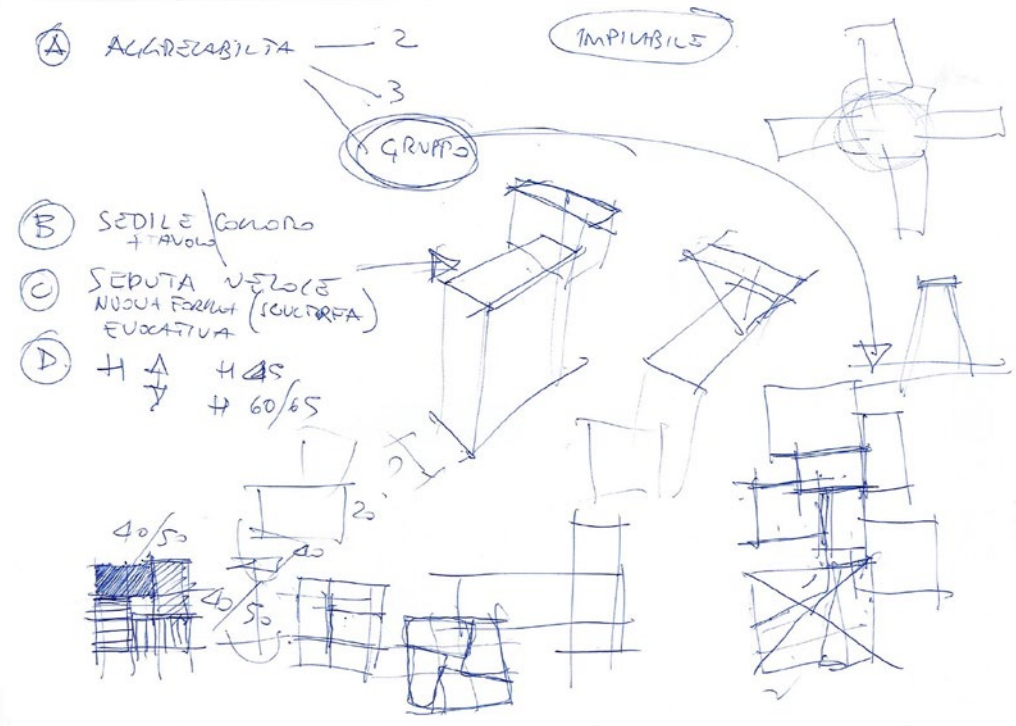 A AGGREGABILITA — 2
IMPILABILE
3
GRUPPO
B SEDILE \ COMODO
+ TAVOLO
C SEDUTA VELOCE
NUOVA FORMA (SCULTOREA)
EVOCATIVA
D H H 45
H 60/65
20
40/50
40
40/50